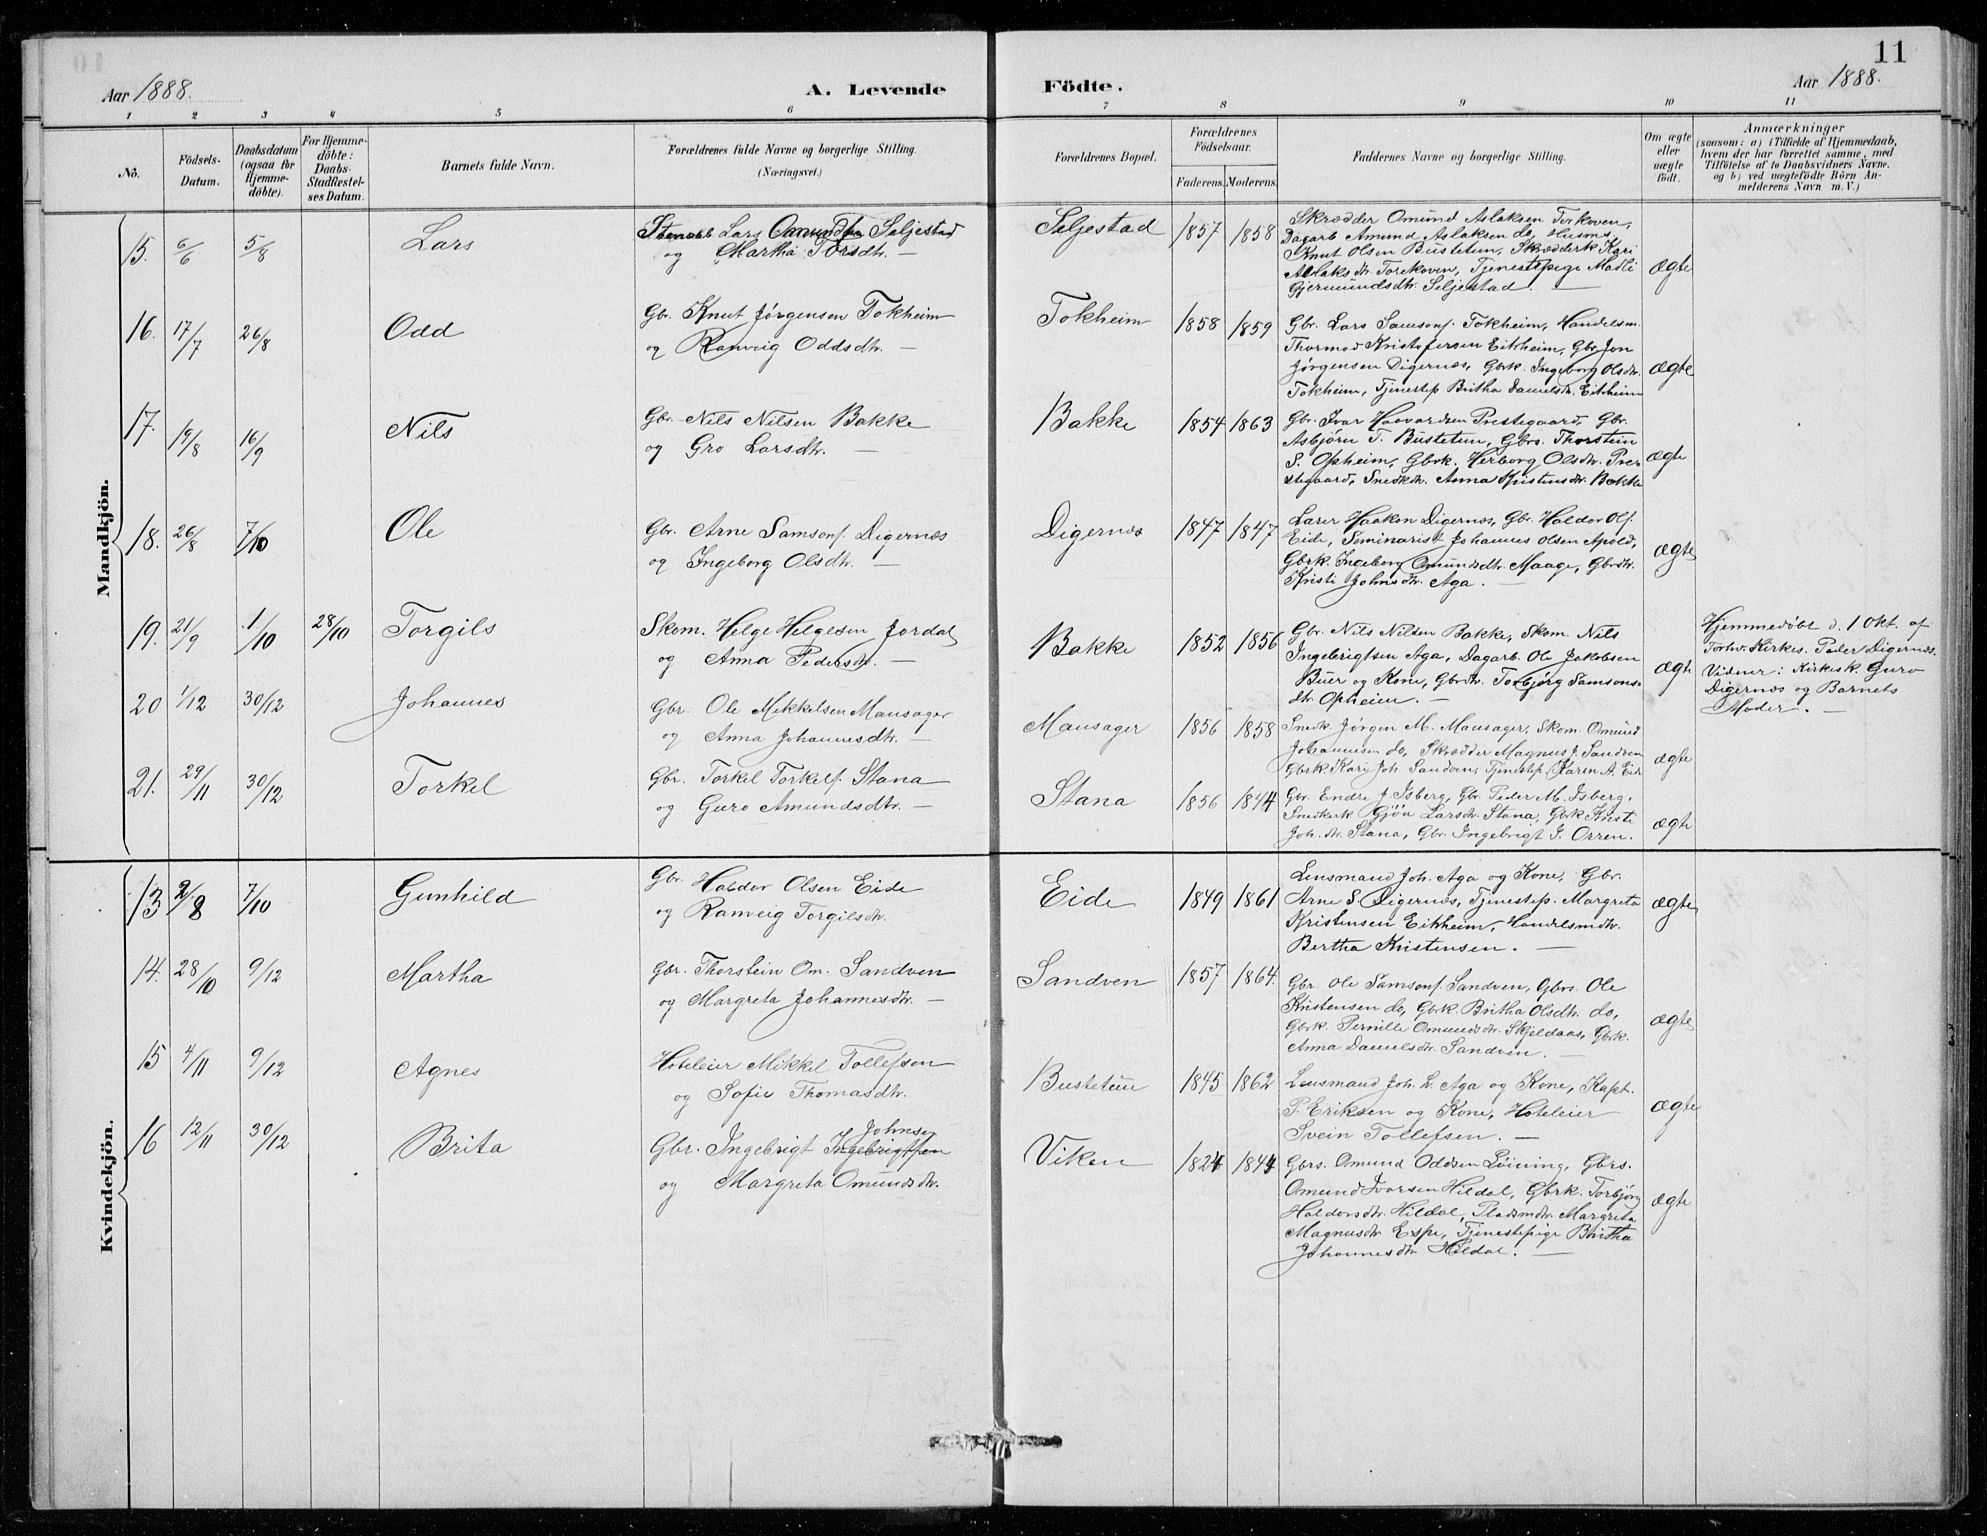 11
Aar 1888. A. Levende Födte. Aar 1888.
1 2 3 4 5 6 7 8 9 10 11
No. Födsels-Datum. Daabsdatum (ogsaa for Hjemmedöbte). For Hjemmedöbte: Daabs-Stadfæstelses Datum. Barnets fulde Navn. Forældrenes fulde Navne og borgerlige Stilling. (Næringsvei.) Forældrenes Bopæl. Forældrenes Födselsaar. Faderens. Moderens. Faddernes Navne og borgerlige Stilling. Om ægte eller uægte födt. Anmærkninger (saasom: a) i Tilfælde af Hjemmedaab, hvem der har forrettet samme, med Tilföielse af to Daabsvidners Navne, og b) ved uægtefödte Börn Anmelderens Navn m. V.)
Mandkjön.
15. 6/6 5/8 Lars
Lars Omundsen Seljestad
og Martha Torsdtr. —
Seljestad 1857 1858
Skrædder Omund Aslaksen Torkoven,
Dagarb Amund Aslaksen do, Husms
Knut Olsen Bustetun, Skrædderk Kari
Aslaksdtr. Torekoven, Tjenestepige Madli
Gjermundsdtr. Seljestad. —
ægte
16. 17/7 26/8 Odd
Gbr. Knut Jørgensen Tokheim
og Ranveig Oddsdtr. —
Tokheim 1858 1859
Gbr. Lars Samsons. Tokheim, Handelsm.
Thormod Kristofersen Eitrheim, Gbr. Jon
Jørgensen Digernæs, Gbrk. Ingeborg Olsdtr.
Tokheim, Tjenestep Britha Danielsdtr. Eitrheim
ægte
17. 19/8 16/9 Nils
Gbr. Nils Nilsen Bakke
og Gro Larsdtr. —
Bakke 1854 1863
Gbr. Ivar Haavardsen Prestegaard, Gbr.
Asbjørn T. Bustetun, Gbrs. Thorstein
S. Opheim, Gbrk. Herborg Olsdtr. Pre-
stegaard, Snedkdtr. Anna Kristensdtr. Bakke
ægte
18. 26/8 7/10 Ole
Gbr. Arne Samsons. Digernæs
og Ingeborg Olsdtr. —
Digernæs 1847 1847
Lærer Haakon Digernæs, Gbr. Haldor Ols.
Eide, Seminarist Johannes Olsen Apold,
Gbrk. Ingeborg Omundsdtr. Maage, Gbrdtr.
Kristi Johnsdtr. Aga. —
ægte
19. 21/9 1/10 28/10 Torgils
Skom. Helge Helgesen Jordal
og Anna Pedersdtr. —
Bakke 1852 1856
Gbr. Nils Nilsen Bakke, Skom. Nils
Ingebrigtsen Aga, Dagarb. Ole Jakobsen
Buer og Kone, Gbrdtr. Torbjørg Samsons-
dtr. Opheim. —
ægte
Hjemmedøbt d. 1 Okt. af
Forhv. Kirkes. Peder Digernæs.
Vidner: Kirkesk. Guro
Digernæs og Barnets
Moder. —
20 1/12 30/12 Johannes
Gbr. Ole Mikkelsen Mansager
og Anna Johannesdtr. —
Mansager 1856 1858
Snedk. Jørgen M. Mansager, Skom. Omund
Johannesen do, Skrædder Magnus J. Sandven
Gbrk Kari Joh. Sandven, Tjenestep. Karen A. Eide
ægte
21. 29/11 30/12 Torkel
Gbr. Torkel Torkels. Stana
og Guro Amundsdtr. —
Stana 1856 1844
Gbr. Endre J. Isberg, Gbr. Peder M. Isberg.
Snedkerk Gjøa Larsdtr. Stana, Gbrk Kristi
Joh. dtr. Stana, Gbr. Ingebrigt J. Orren.
ægte
Kvindekjön.
13 2/8 7/10 Gunhild
Gbr. Haldor Olsen Eide
og Ranveig Torgilsdtr.
Eide 1849 1861
Lensmand Joh. Aga og Kone, Gbr.
Arne S. Digernæs, Tjenestep. Margreta
Kristensen Eitrheim, Handelsmdtr.
Bertha Kristensen. —
ægte
14. 28/10 9/12 Martha
Gbr. Thorstein Om. Sandven
og Margreta Johannesdtr. —
Sandven 1857 1864.
Gbr. Ole Samsons. Sandven, Gbrs. Ole
Kristensen do, Gbrk Britha Olsdtr. do,
Gbrk. Pernille Omundsdtr. Skjeldaas, Gbrk.
Anna Danielsdtr. Sandven. —
ægte
15 4/11 9/12 Agnes
Hoteleier Mikkel Tollefsen
og Sofie Thomasdtr.
Bustetun 1845 1862
Lensmand Joh. L. Aga og Kone, Kapt.
P. Eriksen og Kone, Hoteleier
Svein Tollefsen. —
ægte
16 12/11 30/12 Brita
Johnsen
Gbr. Ingebrigt Ingebrigtsen
og Margreta Omundsdtr.
Viken 1824 1844
Gbrs. Omund Oddsen Løining, Gbrs.
Omund Ivarsen Hildal, Gbrk. Torbjørg
Haldorsdtr. Hildal, Pladsmdtr. Margreta
Magnusdtr Espe, Tjenestepige Britha
Johannesdtr Hildal. —
ægte